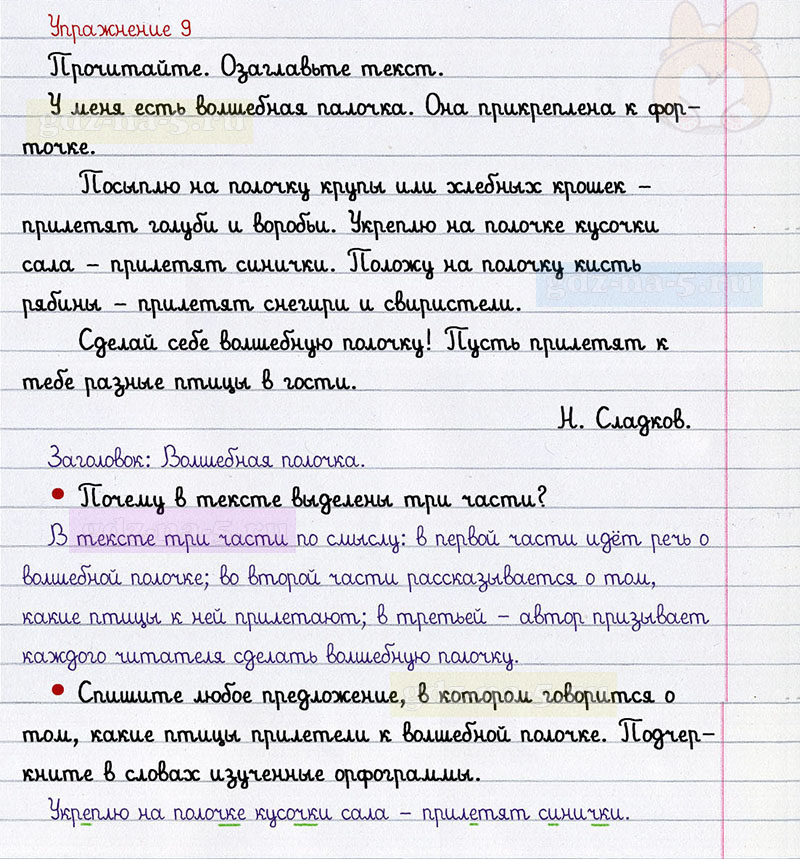 Упражнение 9
Прочитайте. Озаглавьте текст.
У меня есть волшебная палочка. Она прикреплена к фор-
точке.
Посыплю на полочку крупы или хлебных крошек –
прилетят голуби и воробьи. Укреплю на полочке кусочки
сала – прилетят синички. Положу на полочку кисть
рябины – прилетят снегири и свиристели.
Сделай себе волшебную полочку! Пусть прилетят к
тебе разные птицы в гости.
Н. Сладков.
Заголовок: Волшебная полочка.
• Почему в тексте выделены три части?
В тексте три части по смыслу: в первой части идёт речь о
волшебной полочке; во второй части рассказывается о том,
какие птицы к ней прилетают; в третьей – автор призывает
каждого читателя сделать волшебную полочку.
• Спишите любое предложение, в котором говорится о
том, какие птицы прилетели к волшебной полочке. Подчер-
кните в словах изученные орфограммы.
Укреплю на полочке кусочки сала – прилетят синички.
gdz-na-5.ru
gdz-na-5.ru
gdz-na-5.ru
gdz-na-5.ru